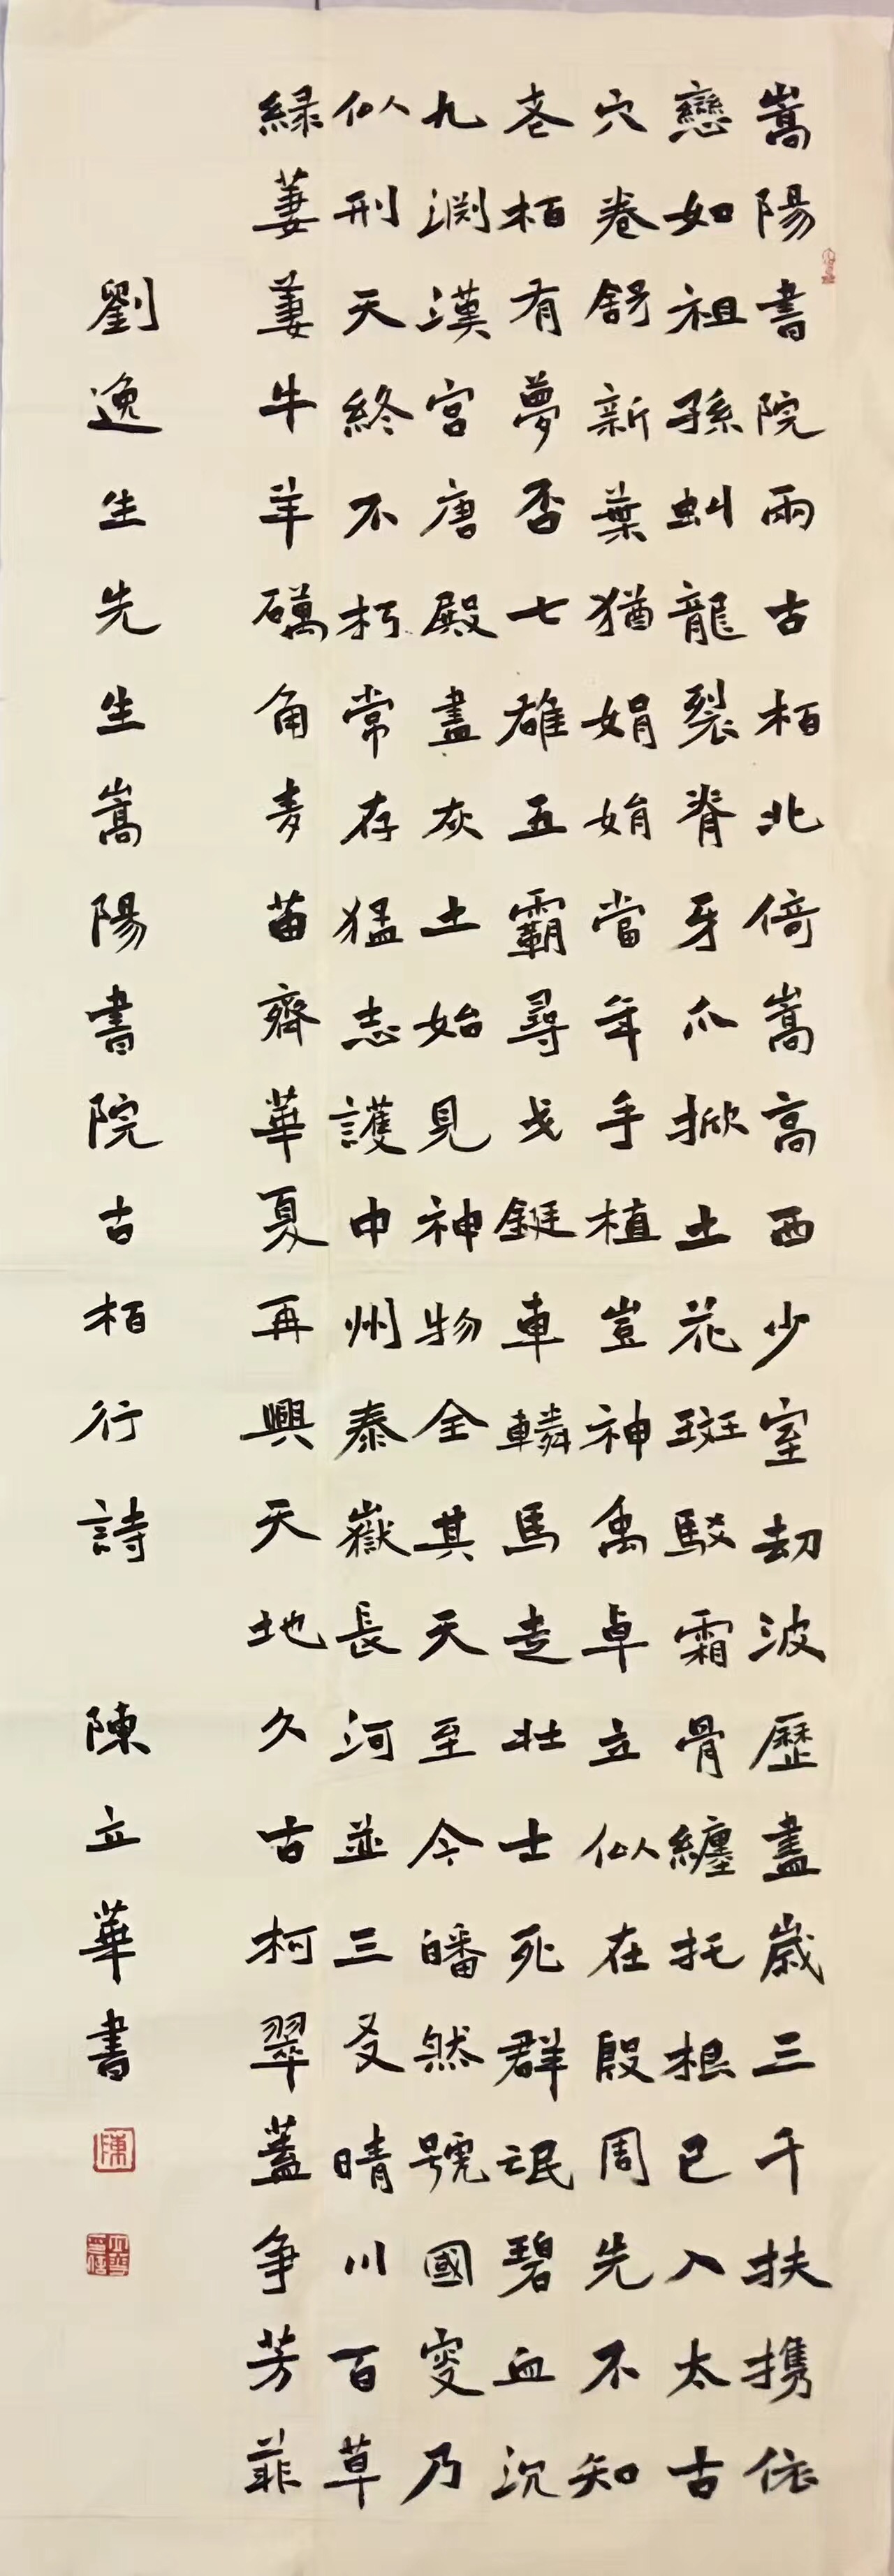 嵩陽書院兩古柏北倚嵩高西少室劫波歷盡歲三千扶携依
戀如祖孫虯龍裂脊牙爪掀土花斑駁霜骨纏托根已入太古
穴卷舒新葉猶娟娟當年手植豈神禹卓立似在殷周先不知
老柏有夢否七雄五霸尋戈鋋車轔馬走壯士死群氓碧血沉
九淵漢宮唐殿盡灰土始見神物全其天至今皤然號國叟乃
似刑天終不朽常存猛志護中州泰嶽長河並三友晴川百草
緑萋萋牛羊礪角麦苗齊華夏再興天地久古柯翠蓋争芳菲
劉逸生先生嵩陽書院古柏行詩 陳立華書
陳